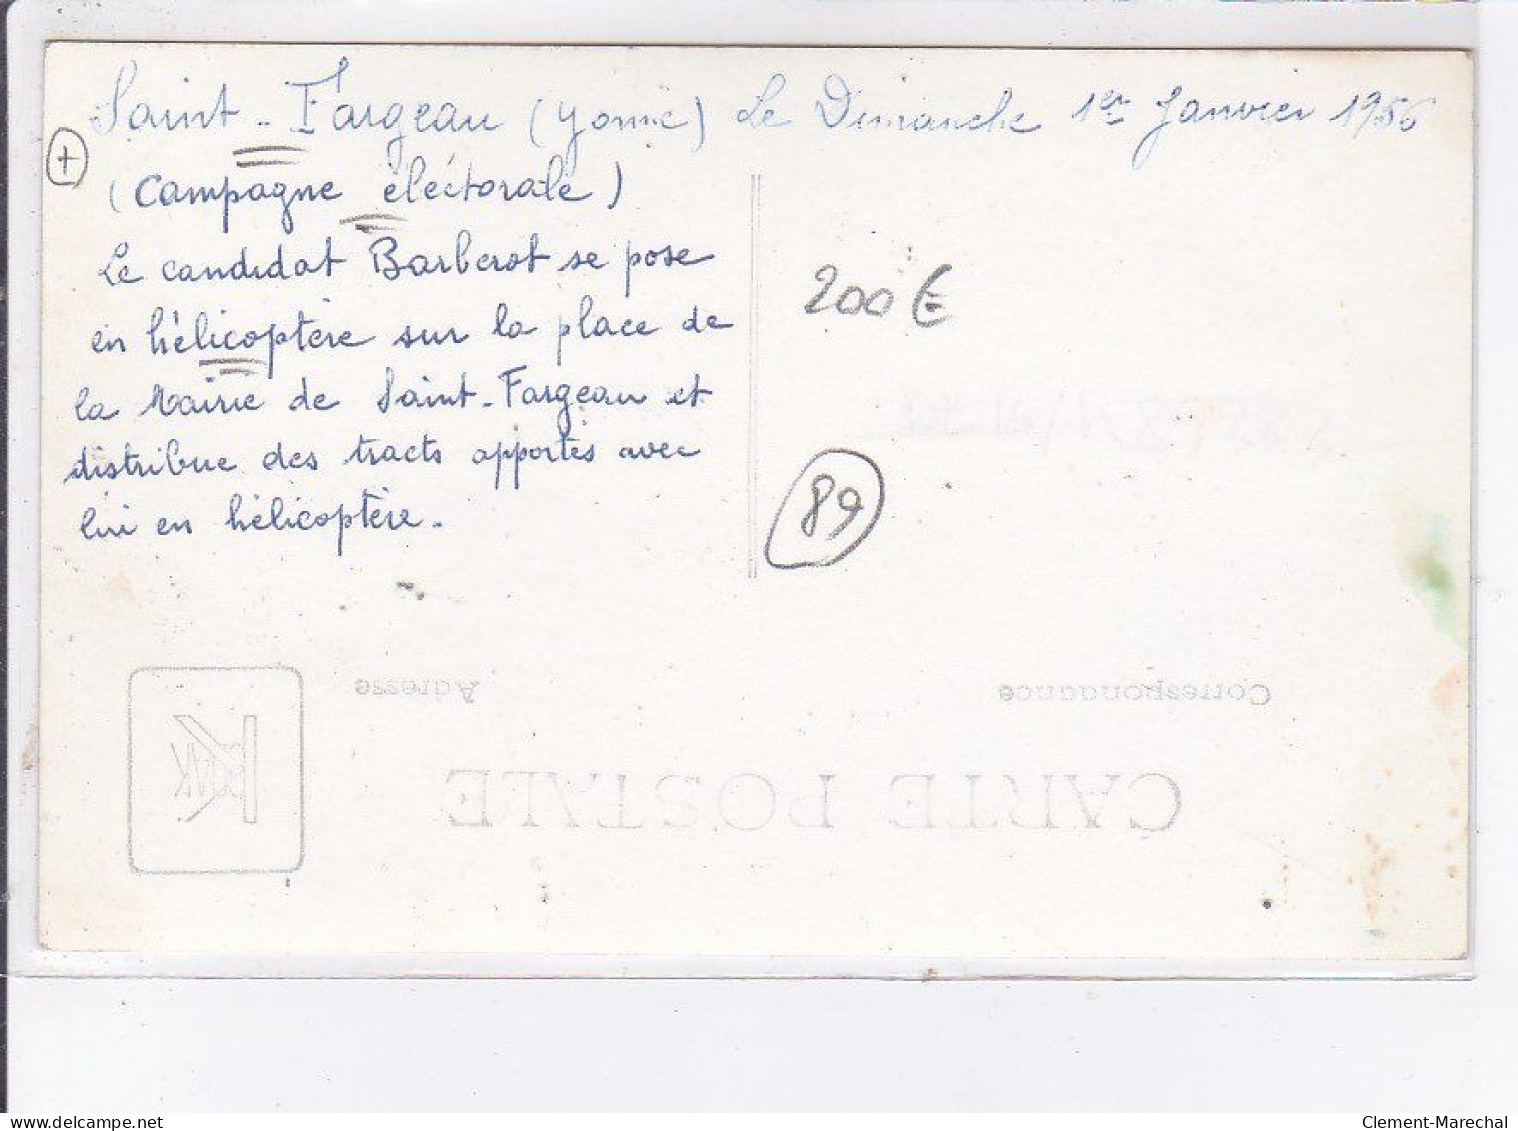 Saint-Fargeau (Yonne) Le Dimanche 1er Janvier 1956
+
(Campagne électorale)
Le candidat Barberot se pose
en hélicoptère sur la place de
la Mairie de Saint-Fargeau et
distribue des tracts apportés avec
lui en hélicoptère.
200 €
89
Adresse
Correspondance
CARTE POSTALE
KODAK
delcampe.net
Clement-Marechal